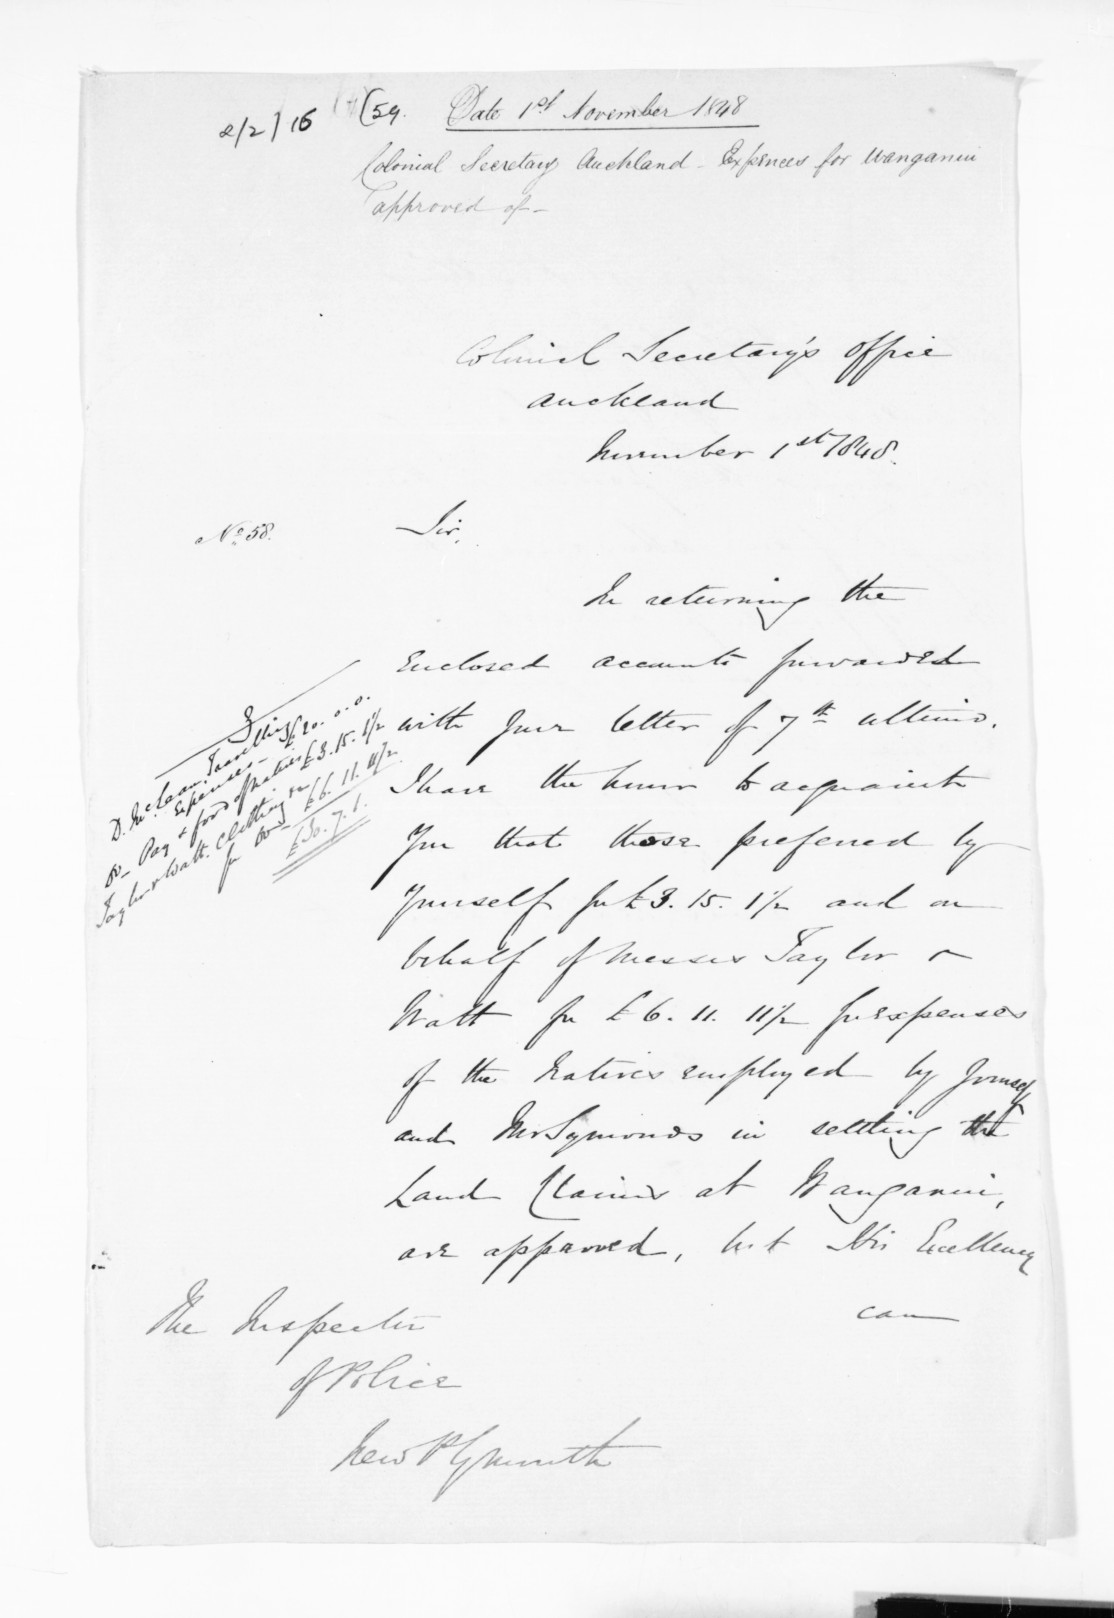 2/2) 16 (59. Date 1st November 1848
Colonial Secretary Auckland - Expences for Wanganui
approved of -
Colonial Secretary's Office
Auckland
November 1st 1848.
No. 58.
Sir,
In returning the
enclosed accounts forwarded
with your letter of 7th ultimo,
I have the honor to acquaint
you that those preferred by
yourself for £3. 15. 1½ and on
behalf of Messrs Taylor &
Watt for £6. 11. 11½ for expenses
of the Natives employed by yourself
and Mr Symonds in settling the
Land Claims at Wanganui,
are approved, but His Excellency
can
D. McLean. Travelling
Expenses - £20. 0. 0.
Do - Pay & food of natives £3. 15. 1½
Taylor & Watt. Clothing &c
for Do - £6. 11. 11½
£30. 7. 1.
The Inspector
of Police
New Plymouth